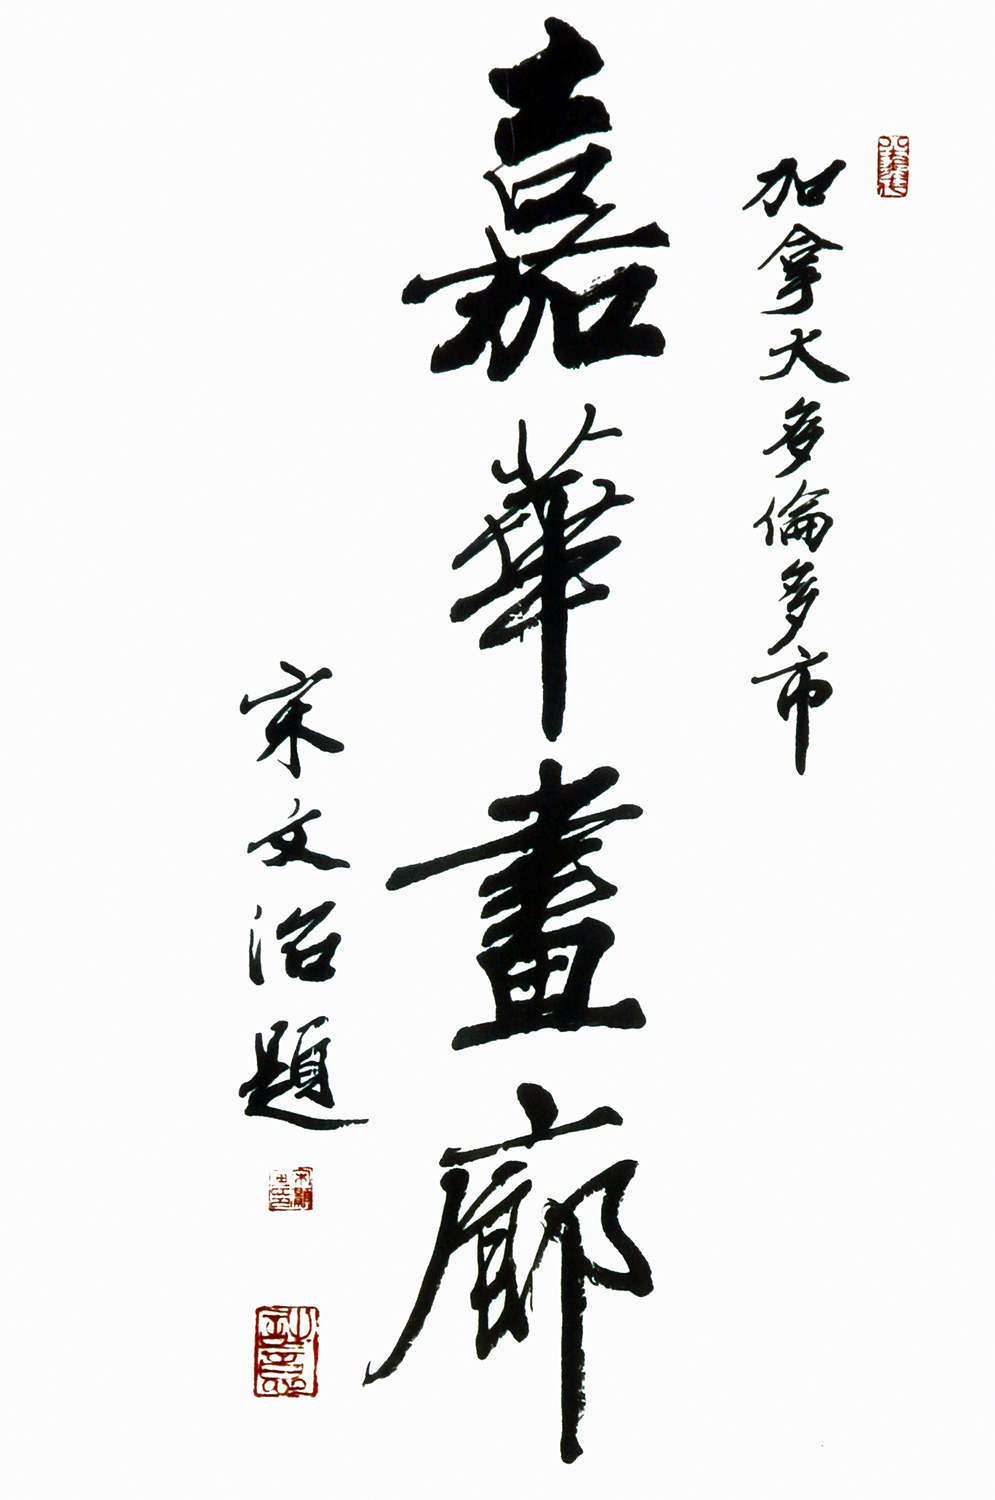 加拿大多倫多市
嘉華畫廊
宋文治題